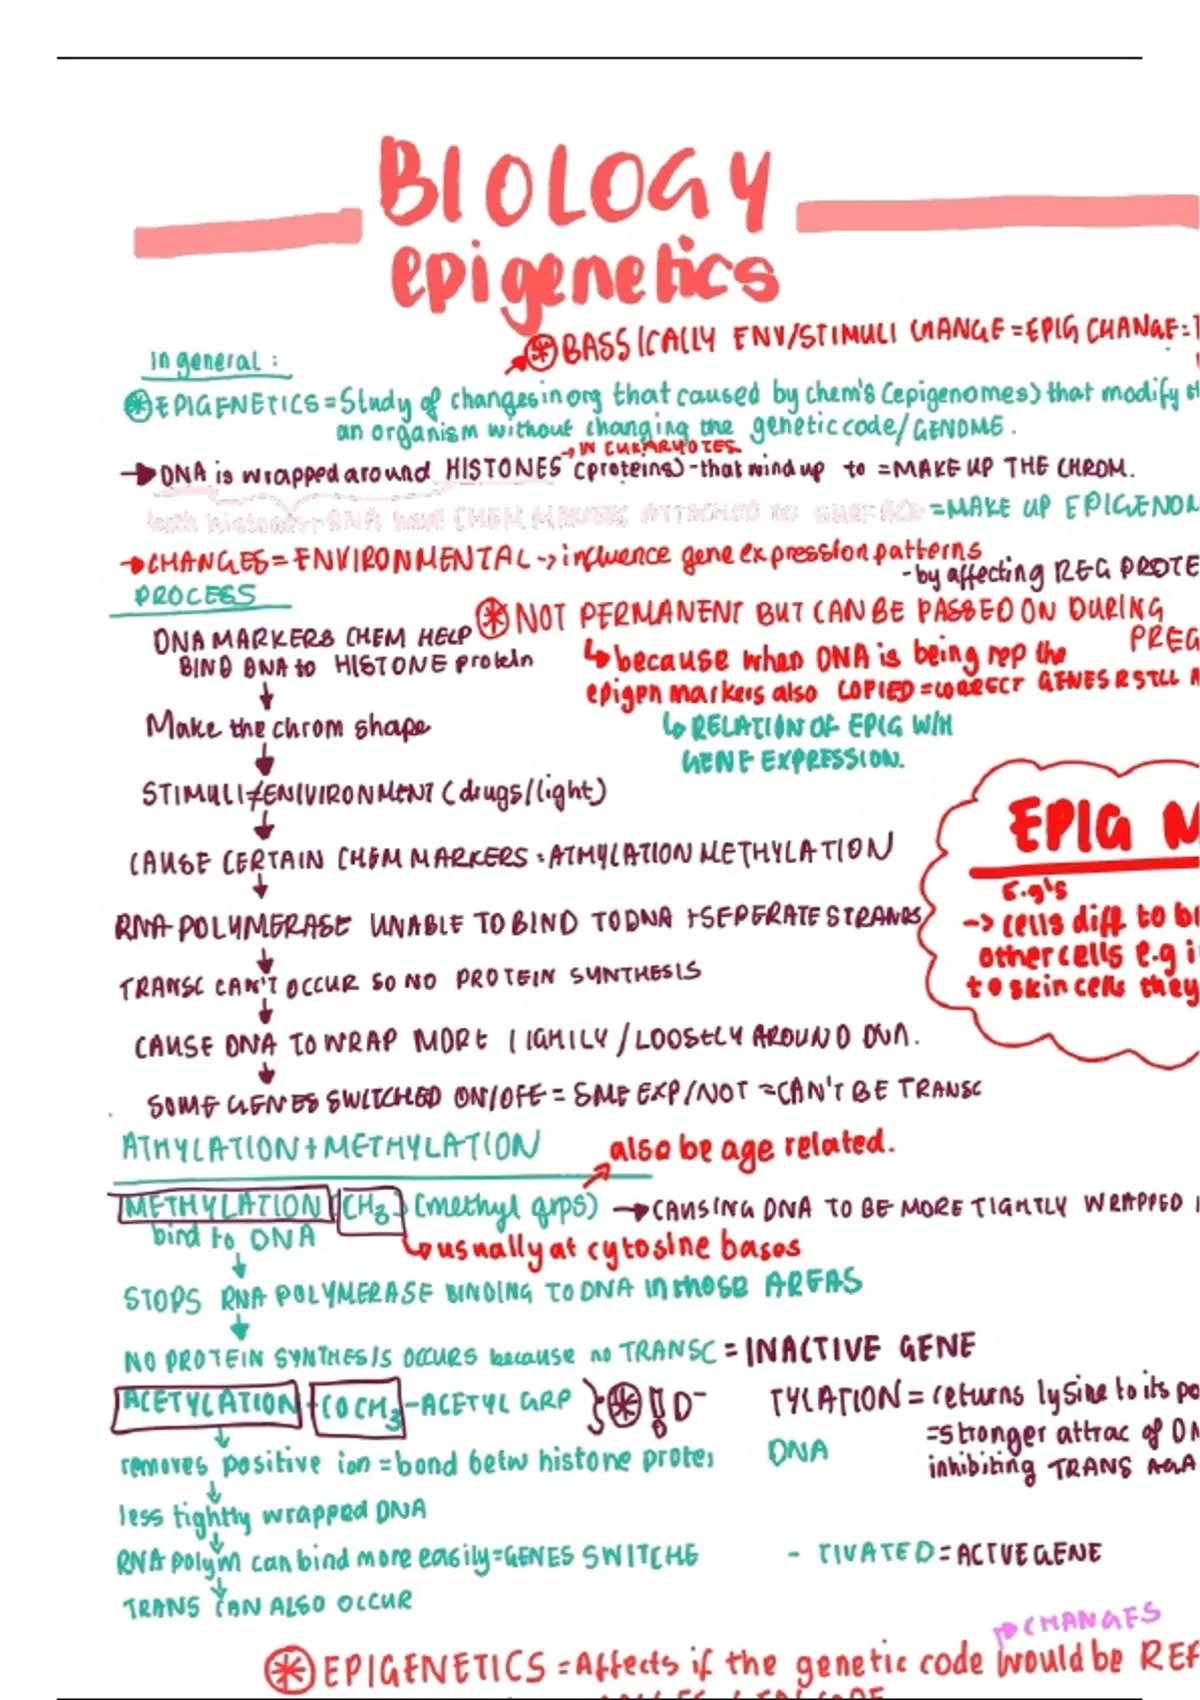 BIOLOGY
epigenetics
in general :
BASSICALLY ENV/STIMULI CHANGE = EPIG CHANGE =
EPIGENETICS = Study of changes in org that caused by chem's (epigenomes) that modify
an organism without changing the genetic code/GENOME.
→ IN EUKARYOTES
→ DNA is wrapped around HISTONES (proteins) - that wind up to = MAKE UP THE CHROM.
both histones + DNA have CHEM MARKERS ATTACHED to SURFACE = MAKE UP EPIGENO
→ CHANGES = ENVIRONMENTAL -> influence gene expression patterns
- by affecting REG PROTE
PROCESS
NOT PERMANENT BUT CAN BE PASSED ON DURING
PREG
DNA MARKERS CHEM HELP
BIND DNA to HISTONE protein
↳ because when DNA is being rep the
epigen markers also COPIED = CORRECT GENES R STILL
↳ RELATION OF EPIG W/H
GENE EXPRESSION.
Make the chrom shape
STIMULI ENIVIRONMENT (drugs/light)
CAUSE CERTAIN CHEM MARKERS : ATHYLATION METHYLATION
RNA POLYMERASE UNABLE TO BIND TO DNA + SEPERATE STRANDS
TRANSC CAN'T OCCUR SO NO PROTEIN SYNTHESIS
CAUSE DNA TO WRAP MORE TIGHTLY / LOOSELY AROUND DNA.
SOME GENES SWITCHED ON/OFF = SME EXP/NOT = CAN'T BE TRANSC
EPIG
E.g's
-> cells diff to
other cells e.g
to skin cells they
ATHYLATION + METHYLATION
also be age related.
METHYLATION (CH3) (methyl grps) → CAUSING DNA TO BE MORE TIGHTLY WRAPPED
bind to DNA
↳ usually at cytosine bases
STOPS RNA POLYMERASE BINDING TO DNA in those AREAS
NO PROTEIN SYNTHESIS OCCURS because no TRANSC = INACTIVE GENE
ACETYLATION - COCH3 - ACETYL GRP } ! D-
TYLATION = returns lysine to its po
= stronger attrac of DN
inhibiting TRANS
removes positive ion = bond betw histone protei
DNA
less tightly wrapped DNA
RNA polym can bind more easily = GENES SWITCHE
- TIVATED = ACTVE GENE
TRANS CAN ALSO OCCUR
→ CHANGES
EPIGENETICS = Affects if the genetic code would be REF